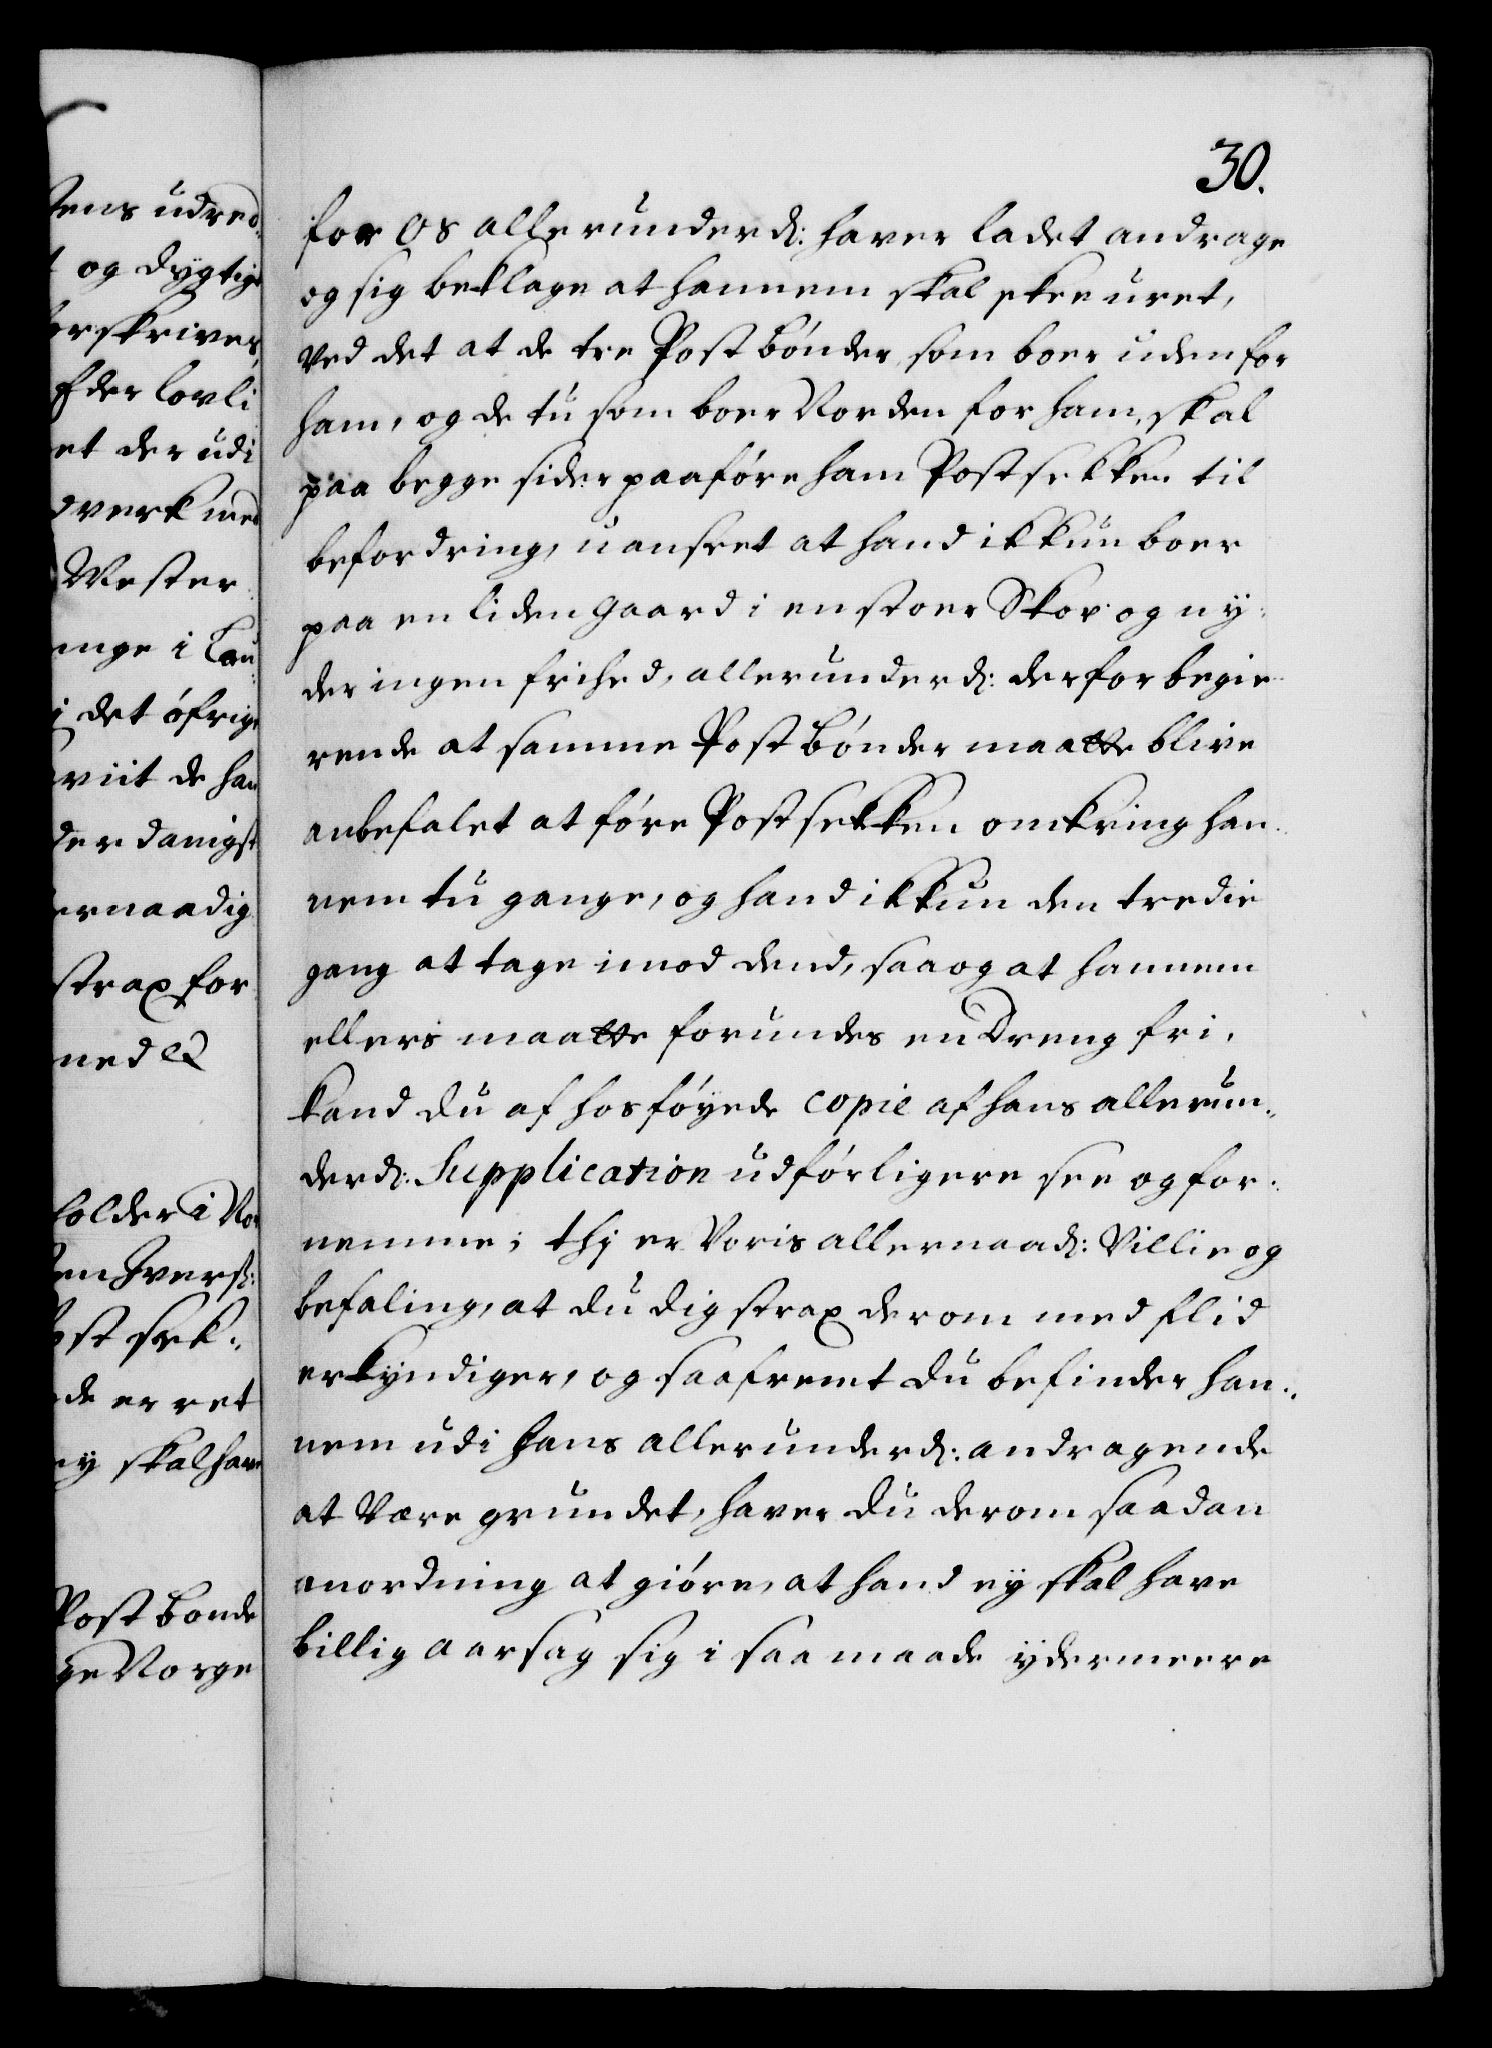 tens udred-
og dygtige
forskrives,
efter lovli
et der udi
dverk med
Wester-
inge i Lau-
i det öfrige
viit de han
der danigst
ernaadig
strax for
med &
holder i Nor
en Iverss:
Post sek-
de er ret
ey skal have
Post bonde
ge Norge
30.
for OS allerunderd: haver ladet andrage
og sig beklage at hannem skal skee uret,
ved det at de tre Post bönder som boer udenfor
ham, og de tu som boer Norden for ham, skal
paa begge sider paaföre ham Postsekken til
befordring, uanseet at hand ikkun boer
paa en liden gaard i en stoer Skov og ny-
der ingen frihed, allerunderd: derfor begie-
rende at samme Post bönder maatte blive
anbefalet at före Postsekken omkring han-
nem tu gange, og hand ikkun den tredie
gang at tage imod dend, saa og at hannem
ellers maatte forundes en Dreng fri,
kand du af hosföyede copie af hans allerun-
derd: Supplication udförligere see og for-
nemme; thj er Voris allernaad: Villie og
befaling, at du dig strax derom med flid
erkyndiger, og saafremt du befinder han-
nem udi hans allerunderd: andragende
at være grundet, haver du derom saadan
anordning at giöre, at hand ey skal have
billig aarsag sig i saa maade ydermeere